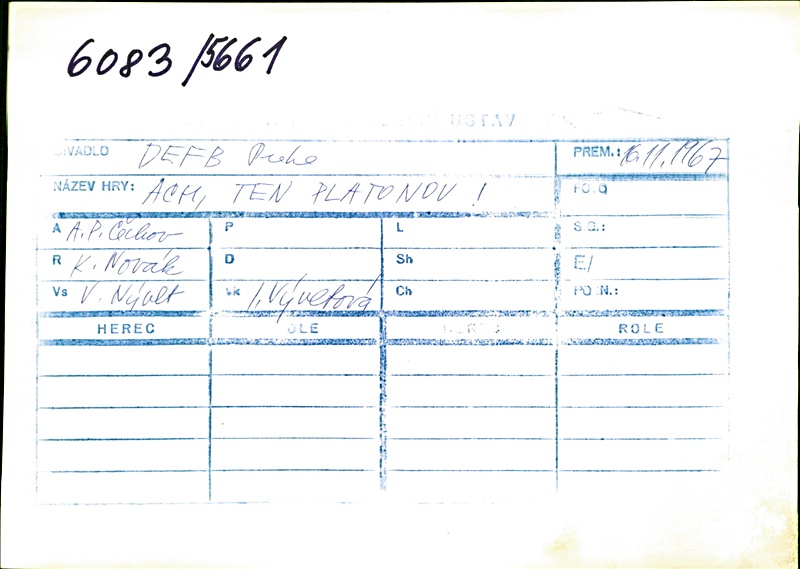 6083/5661
DIVADLO DEFB Praha PREM.: 16.11.1967
NÁZEV HRY: ACH, TEN PLATONOV !
A A.P. Čechov P L S.G.:
R K. Novák D Sh E/
Vs V. Nývlt Vk Ch
HEREC ROLE HEREC ROLE